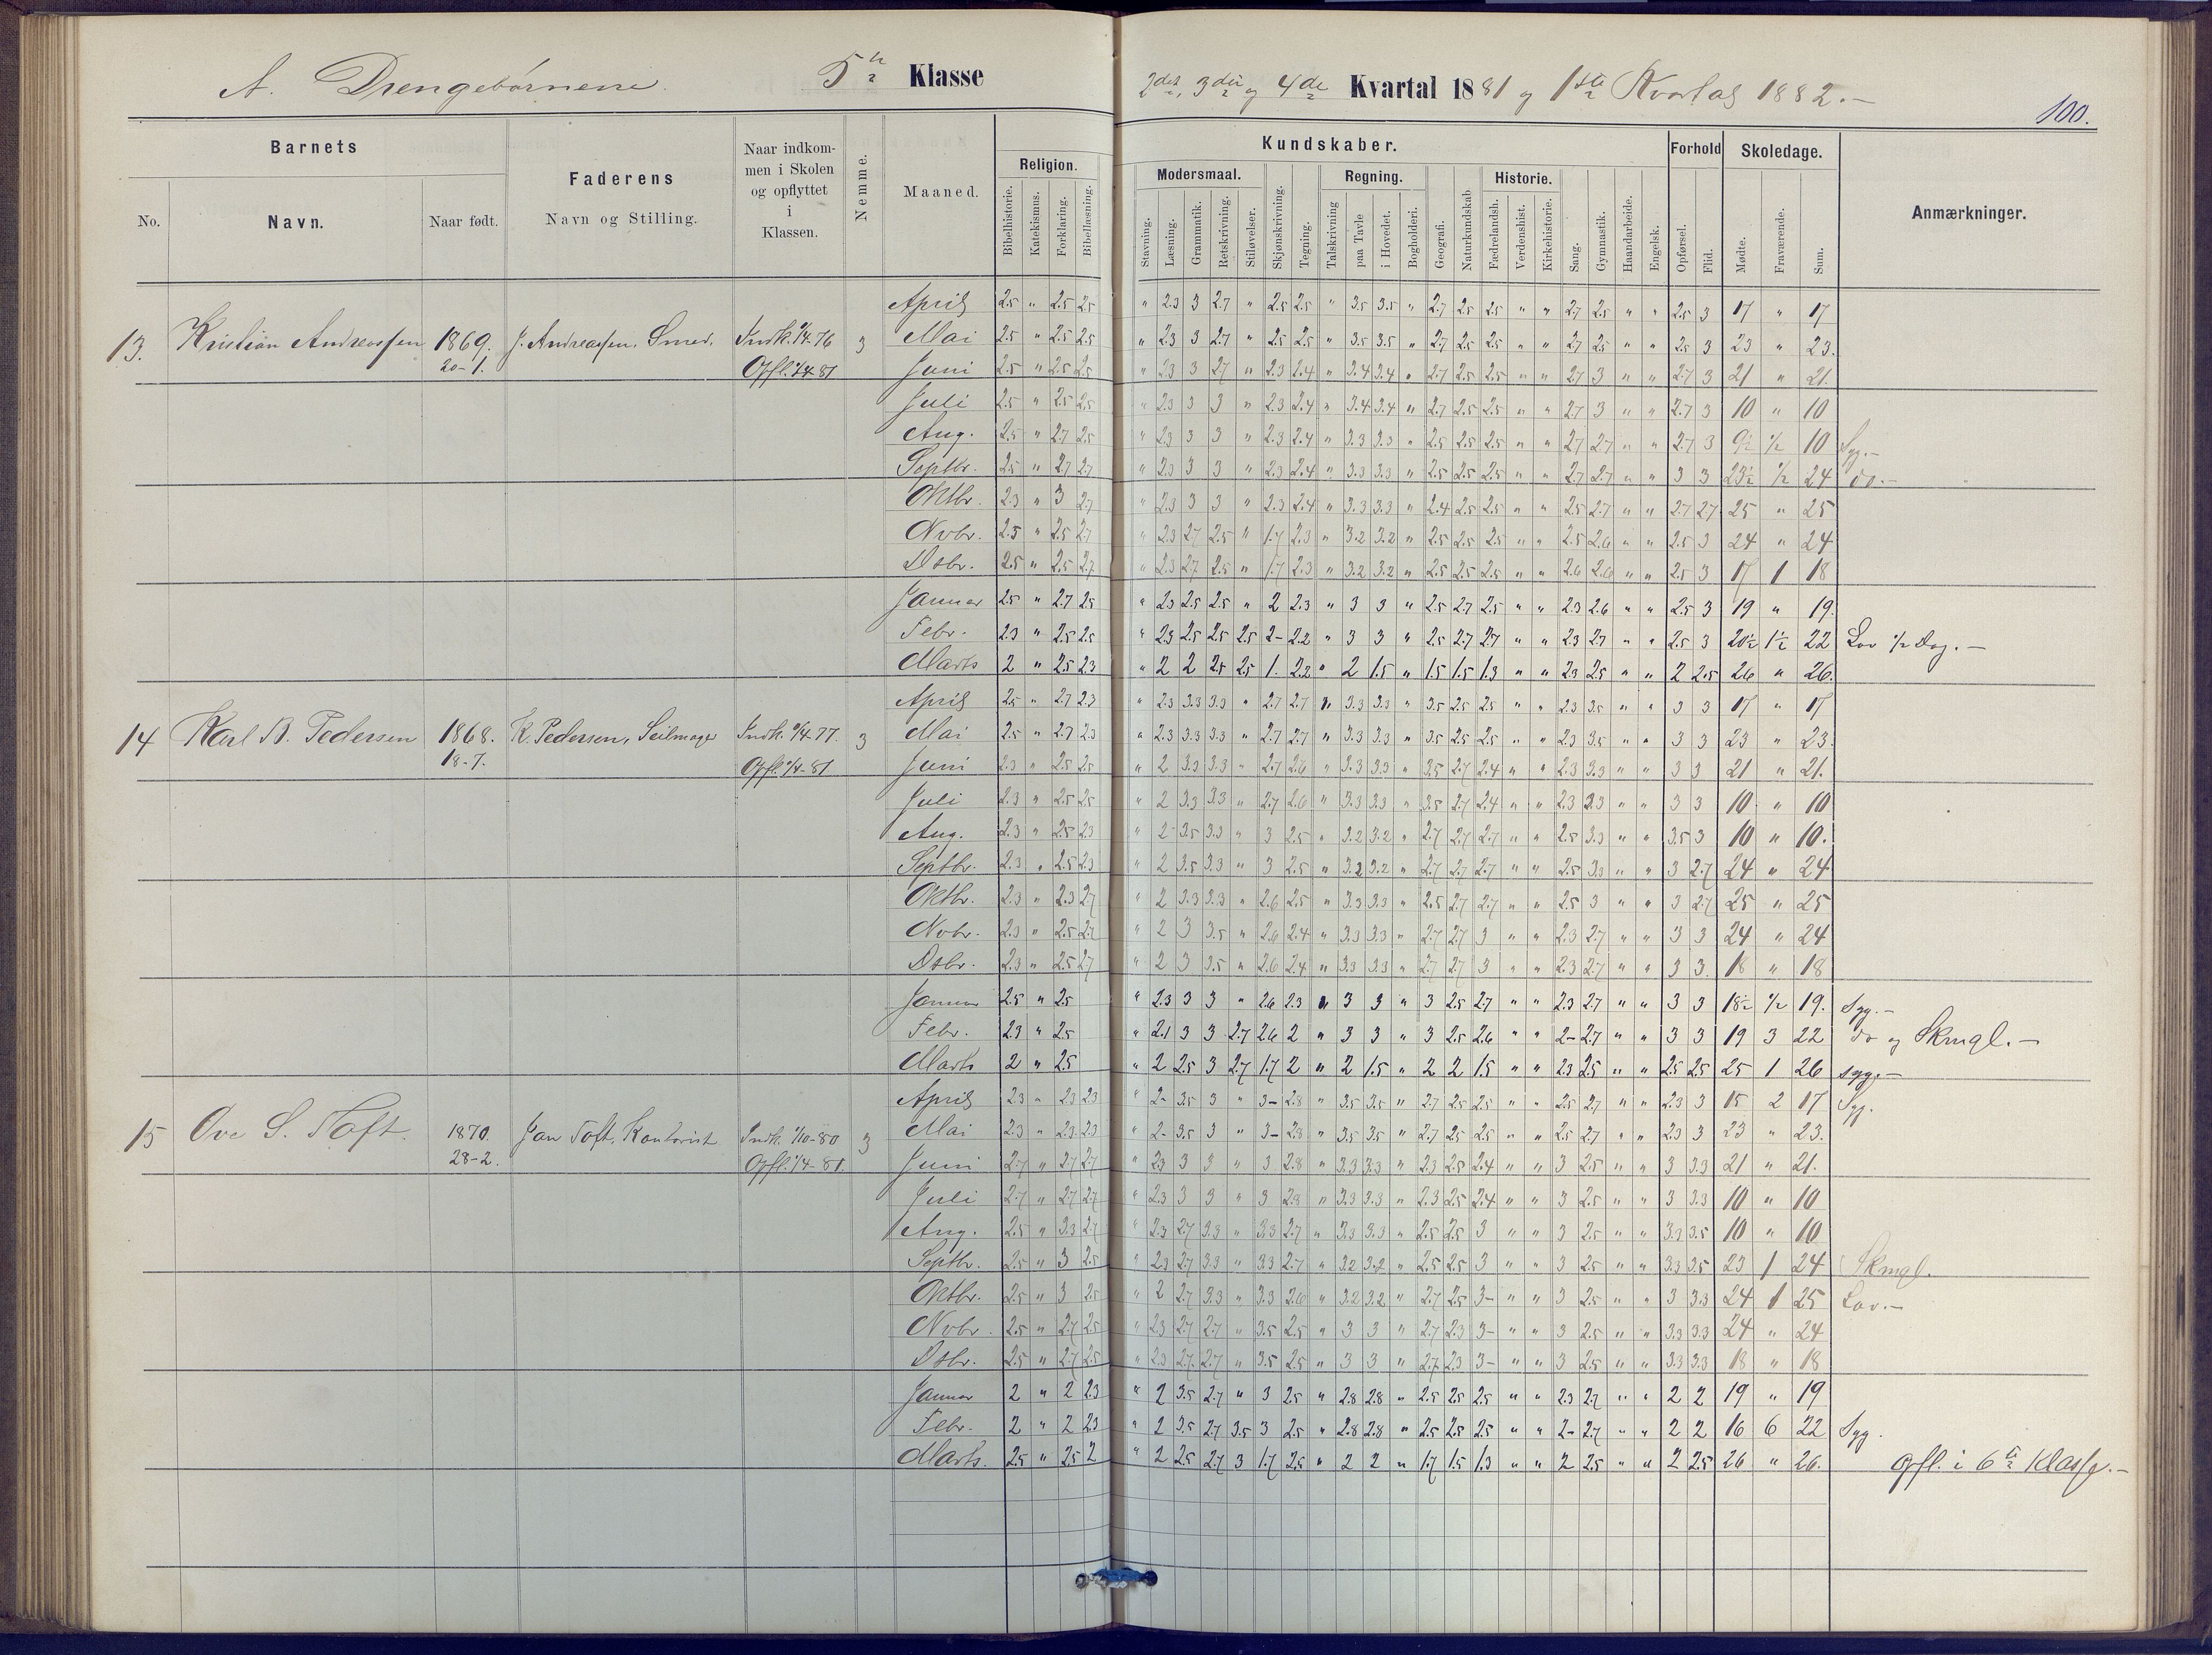 A. Drengebörnene. 5te Klasse 2det, 3die og 4de Kvartal 1881 og 1ste Kvartal 1882.-
100.
Barnets
Faderens
Naar indkommen i Skolen og opflyttet i Klassen.
Nemme.
Maaned.
Kundskaber.
Forhold
Skoledage.
Anmærkninger.
No. Navn. Naar født. Navn og Stilling.
Religion. Modersmaal. Regning. Historie.
Bibelhistorie. Katekismus. Forklaring. Bibellæsning. Stavning. Læsning. Grammatik. Retskrivning. Stiløvelser. Skjønskrivning. Tegning. Talskrivning paa Tavle i Hovedet. Bogholderi. Geografi. Naturkundskab Fædrelandsh. Verdenshist. Kirkehistorie. Sang. Gymnastik. Haandarbeide. Engelsk. Opførsel. Flid. Mødte. Fraværende. Sum.
April 2.5 " 2.5 2.5 " 2.3 3 2.7 " 2.5 2.5 " 3.5 3.5 " 2.7 2.5 2.5 " " 2.7 2.5 " " 2.5 3 17 " 17
13. Kristian Andreassen 1869. J. Andreassen, Smed. Indk. 1/4-76 3 Mai 2.5 " 2.5 2.5 " 2.3 3 2.7 " 2.5 2.5 " 3.5 3.5 " 2.7 2.5 2.5 " " 2.7 2.5 " " 2.5 3 23 " 23.
20-1. Opfl. 1/4 81 Juni 2.5 " 2.5 2.5 " 2.3 3 2.7 " 2.3 2.4 " 3.4 3.4 " 2.7 2.5 2.5 " " 2.7 3 " " 2.7 3 21 " 21.
Juli 2.5 " 2.5 2.5 " 2.3 3 3 " 2.3 2.4 " 3.4 3.4 " 2.7 2.5 2.5 " " 2.7 3 " " 2.7 3 10 " 10
Aug. 2.5 " 2.7 2.5 " 2.3 3 3 " 2.3 2.4 " 3.3 3.3 " 2.5 2.5 2.5 " " 2.7 2.7 " " 2.7 3 9½ ½ 10 Syg.-
Septbr. 2.5 " 2.7 2.7 " 2.3 3 3 " 2.3 2.4 " 3.3 3.3 " 2.5 2.5 2.5 " " 2.7 2.7 " " 3 3 23½ ½ 24 do.-
Oktbr. 2.3 " 3 2.7 " 2.3 3 3 " 2.3 2.4 " 3.3 3.3 " 2.4 2.5 2.5 " " 2.5 2.7 " " 2.7 2.7 25 " 25
Novbr. 2.5 " 2.5 2.7 " 2.3 2.7 2.5 " 1.7 2.3 " 3.2 3.2 " 2.5 2.5 2.5 " " 2.5 2.6 " " 2.5 3 24 " 24
Dsbr. 2.5 " 2.5 2.7 " 2.3 2.7 2.5 " 1.7 2.3 " 3.2 3.2 " 2.5 2.5 2.5 " " 2.6 2.6 " " 2.5 3 17 1 18
Januar 2.5 " 2.7 2.5 " 2.3 2.5 2.5 " 2 2.3 " 3 3 " 2.5 2.7 2.5 " " 2.3 2.6 " " 2.5 3 19 " 19.
Febr. 2.3 " 2.5 2.5 " 2.3 2.5 2.5 2.5 2- 2.2 " 3 3 " 2.5 2.7 2.7 " " 2.3 2.7 " " 2.5 3 20½ 1½ 22 Lov ½ Dag.-
Marts 2 " 2.5 2.3 " 2 2 2.5 2.5 1. 2.2 " 2 1.5 " 1.5 1.5 1.3 " " 2.3 2.5 " " 2 2.5 26 " 26.
April 2.5 " 2.7 2.3 " 2.3 3.3 3.3 " 2.7 2.7 " 3.3 3.3 " 3.5 2.5 2.5 " " 2.3 3.5 " " 3 3 17 " 17
14 Karl B. Pedersen 1868. K. Pedersen, Seilmager Indk. 1/4-77. 3 Mai 2.5 " 2.7 2.3 " 2.3 3.3 3.3 " 2.7 2.7 " 3.3 3.3 " 3.5 2.5 2.5 " " 2.3 3.5 " " 3 3 23 " 23.
18-7. Opfl. 1/4-81 Juni 2.3 " 2.5 2.5 " 2 3.3 3.3 " 2.7 2.6 " 3.3 3.3 " 3.5 2.7 2.4 " " 2.3 3.3 " " 3 3 21 " 21.
Juli 2.3 " 2.5 2.5 " 2 3.3 3.3 " 2.7 2.6 " 3.3 3.3 " 3.5 2.7 2.4 " " 2.3 3.3 " " 3 3 10 " 10
Aug. 2.3 " 2.5 2.3 " 2 3.5 3.3 " 3 2.5 " 3.2 3.2 " 2.7 2.7 2.7 " " 2.5 3.3 " " 3.5 3 10 " 10.
Septbr. 2.3 " 2.5 2.3 " 2 3.5 3.3 " 3 2.5 " 3.2 3.2 " 2.7 2.7 2.7 " " 2.5 3.3 " " 3 2.7 24 " 24
Oktbr. 2.3 " 2.3 2.7 " 2 3.3 3.3 " 2.6 2.5 " 3.3 3.3 " 2.5 2.7 2.7 " " 2.5 3 " " 3 2.7 25 " 25
Novbr. 2.3 " 2.5 2.7 " 2 3 3.5 " 2.6 2.4 " 3.3 3.3 " 2.7 2.7 3 " " 2.3 2.7 " " 3 3 24 " 24
Dsbr. 2.3 " 2.5 2.7 " 2 3 3.5 " 2.6 2.4 " 3.3 3.3 " 2.7 2.7 3 " " 2.3 2.7 " " 3 3. 18 " 18
Januar 2.5 " 2.5 " 2.3 3 3 " 2.6 2.3 " 3 3 " 3 2.5 2.7 " " 2.3 2.7 " " 3 3 18½ ½ 19. Syg.-
Febr. 2.3 " 2.5 " 2.1 3 3 2.7 2.6 2 " 3 3 " 3 2.5 2.6 " " 2- 2.7 " " 3 3 19 3 22 do og Skmgl.-
Marts 2 " 2.5 " 2 2.5 3 2.7 1.7 2 " 2 1.5 " 2 2 1.5 " " 2.3 2.5 " " 2.5 2.5 25 1 26 syg.-
April 2.3 " 2.3 2.3 " 2- 3.5 3 " 3- 2.8 " 3.5 3.5 " 2.7 2.5 2.5 " " 2.5 2.7 " " 2.3 3 15 2 17 Syg.
15 Ove S. Toft. 1870. Jan Toft, Kontorist Indk. 1/10-80 3 Mai 2.3 " 2.3 2.3 " 2- 3.5 3 " 3- 2.8 " 3.5 3.5 " 2.7 2.5 2.5 " " 2.5 2.7 " " 2.3 3 23 " 23.
28-2. Opfl. 1/4-81. Juni 2.7 " 2.7 2.7 " 2.3 3 3 " 3 2.8 " 3.3 3.3 " 2.3 2.5 2.4 " " 3 2.5 " " 3 3.3 21 " 21.
Juli 2.7 " 2.7 2.7 " 2.3 3 3 " 3 2.8 " 3.3 3.3 " 2.3 2.5 2.4 " " 3 2.5 " " 3 3.3 10 " 10
Aug. 2.5 " 3.3 2.7 " 2.3 2.7 3.3 " 3.3 2.7 " 3.3 3.3 " 2.5 2.5 3 " " 3 2.5 " " 3.3 3.5 10 " 10
Septbr. 2.5 " 3 2.5 " 2.3 2.7 3.3 " 3.3 2.7 " 3.2 3.2 " 2.5 2.5 3 " " 3 2.5 " " 3.3 3.5 23 1 24 Skmgl.
Oktbr. 2.5 " 3 2.5 " 2 2.7 3.3 " 3.3 2.6 " 3.2 3.2 " 2.7 2.5 3- " " 3 2.5 " " 3 3.3 24 1 25 Lov.-
Novbr. 2.5 " 2.7 2.5 " 2.3 2.7 2.7 " 3.5 2.5 " 3 3 " 2.7 2.3 3- " " 3 2.5 " " 3.3 3.3 24 " 24
Dsbr. 2.5 " 2.7 2.5 " 2.3 2.7 2.7 " 3.5 2.5 " 3 3 " 2.7 2.3 3- " " 3 2.5 " " 3.3 3.3 18 " 18
Januar 2 " 2 2.3 " 2 3.5 2.7 " 3 2.5 " 2.8 2.8 " 2.5 2.5 2.5 " " 2.3 2.7 " " 2 2 19 " 19
Febr. 2 " 2 2.3 " 2 3.5 2.7 3.5 3 2.5 " 2.8 2.8 " 2.5 2.5 2.5 " " 2- 2.7 " " 2 2 16 6 22 Syg.
Marts. 2.5 " 2.5 2 " 2 2.5 2.7 3 1.7 2.5 " 2 2 " 1.7 1.5 1.3 " " 2 2.5 " " 2 2.5 26 " 26. Opfl. i 6te Klasse.-